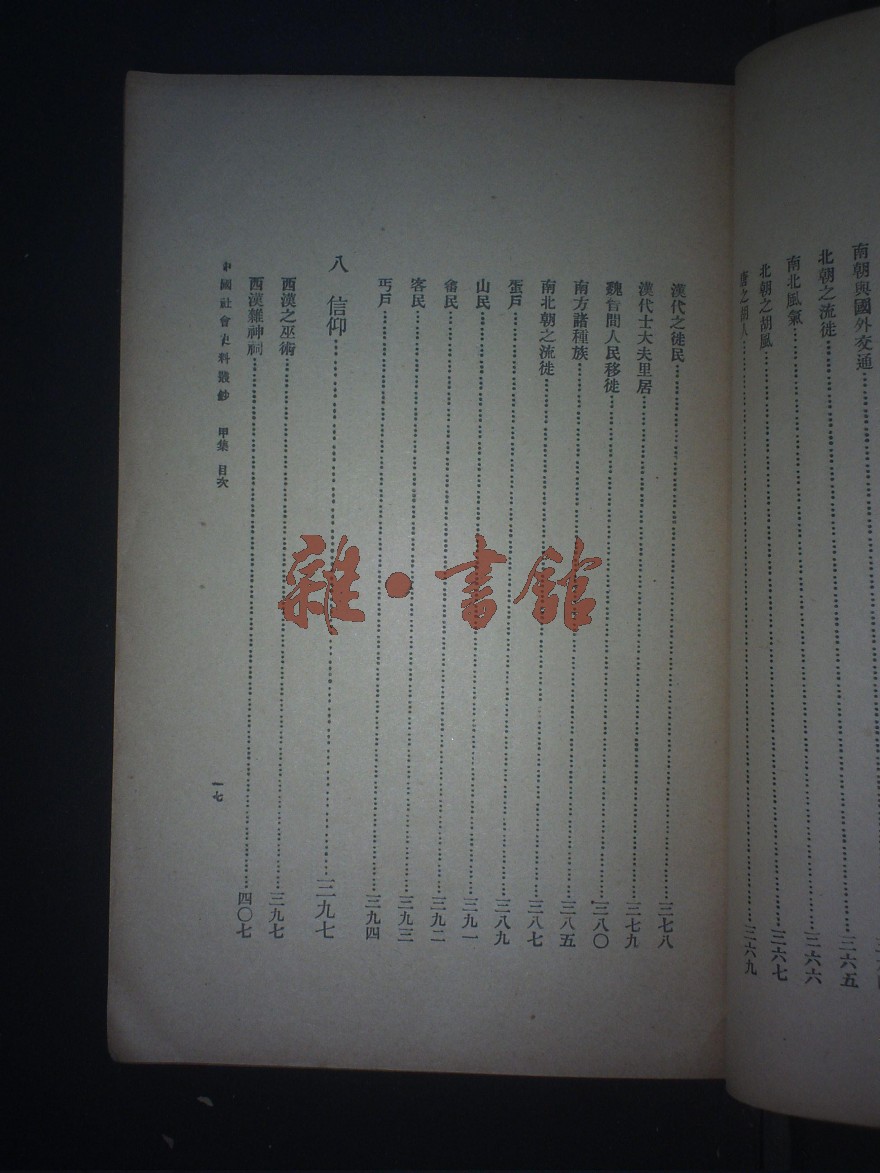 南朝與國外交通
北朝之流徙……三六五
南北風氣……三六六
北朝之胡風……三六七
唐之胡人……三六九
漢代之徙民……三七八
漢代士大夫里居……三七九
魏晉間人民移徙……三八〇
南方諸種族……三八五
南北朝之流徙……三八七
蜑戶……三八九
山民……三九一
畲民……三九二
客民……三九三
丐戶……三九四
八 信仰……三九七
西漢之巫術……三九七
西漢雜神祠……四〇七
中國社會史料叢鈔 甲集 目次
一七
雜·書館